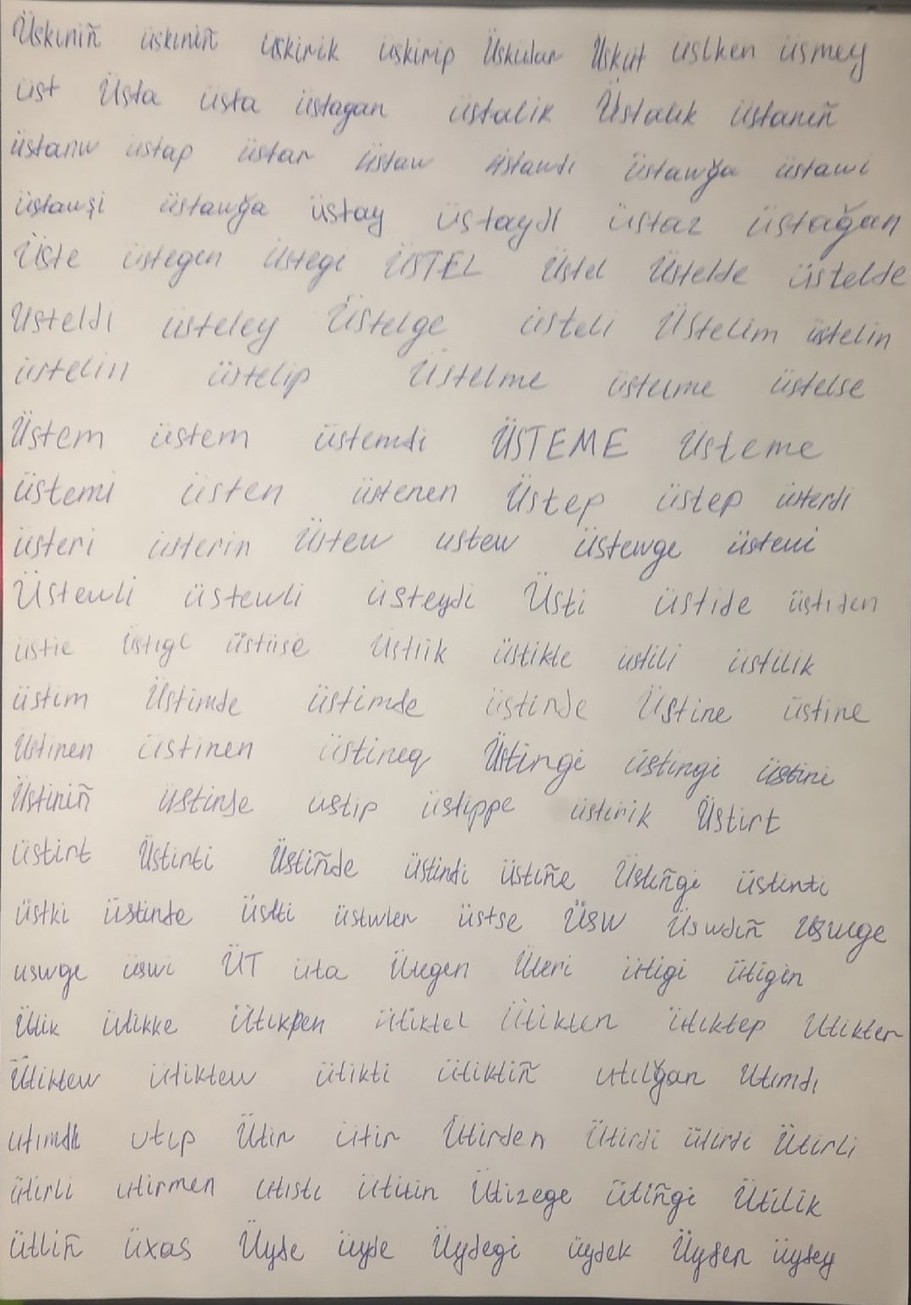 Üskıniñ üskıniñ üskirik üskirip Üskular Üskút üslken üsmey
üst Üsta üsta üstagan üstalik Üstalık üstanıñ
üstanw üstap üstar üstaw üstawdı üstawğa üstawi
üstawşi üstawğa üstay üstaydl üstaz üstağan
Üste üstegen üstegi ÜSTEL Üstel Üstelde üstelde
Usteldi üsteley Üstelge üsteli Üstelim üstelin
üstelin üstelip Üstelme üstelme üstelse
Üstem üstem üstemdi ÜSTEME Üsteme
üstemi üsten üstenen Üstep üstep üsterdi
üsteri üsterin Üstew ustew üstewge üstewi
Üstewli üstewli üsteydi Üsti üstide üstiden
üstie üstige üstiise Üstiik üstikle üstili üstilik
üstim Üstimde üstimde üstinde Üstine üstine
Üstinen üstinen üstineq Üstingi üstingi üstini
Üstiniñ üstinde ustip üstippe üstirik Üstirt
üstirt Üstirti Üstiñde üstindi üstiñe Üstiñgi üstinti
üstki üstinde üstti üstwler üstse Üsw Üswdiñ Uswge
uswge üswi ÜT üta Ütegen Üteri ütigi ütigin
Ütik ütikke Ütikpen ütiktel Ütikten ütiktep Utikter
Ütiktew ütiktew ütikti ütiktiñ utılğan Utımdı
utımdı utıp Ütir ütir Ütirden Ütirdi ütirdi Ütirli
ütirli utirmen utisti ütitin Ütizege ütiñgi Ütilik
ütliñ üxas Üyde üyde Üydegi üydek Üyden üydey